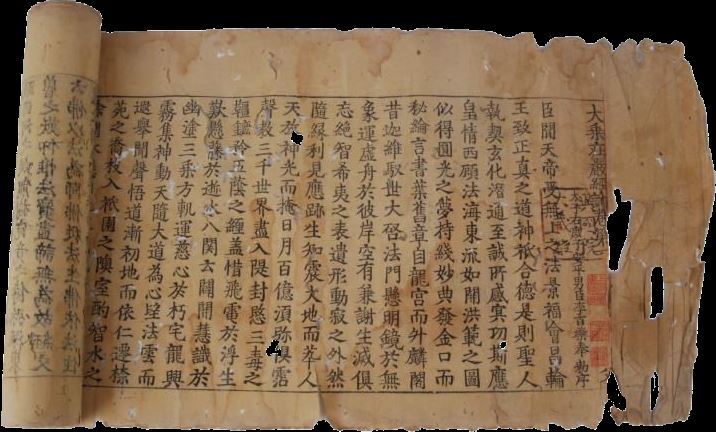 大乘莊嚴經論序
太子右庶子安平男臣李百藥奉 勅序
臣聞天帝受無上之法景福會昌輪
王致正真之道神祇合德是則聖人
執契玄化潛通至誠所感冥功斯應
皇情西顧法海東流如開洪範之圖
似得圓光之夢持綫妙典發金口而
秘綸言書葉舊章自龍宮而升麟閣
昔迦維馭世大啓法門懸明鏡於無
象運虛舟於彼岸空有兼謝生滅俱
忘絕智希夷之表遺形動寂之外然
隨緣利見應跡生知震大地而萃人
天放神光而掩日月百億須弥俱霑
聲教三千世界盡入隄封愍三毒之
韁鏁矜五蔭之纏蓋惜飛電於浮生
歎懸藤於逝水八關云闢開慧識於
幽塗三乘方軌運慈心於朽宅龍興
霧集神動天隨大道為心望法雲而
遐舉聞聲悟道漸初地而依仁遷柰
苑之喬枝入祇園之隩室酌智水之